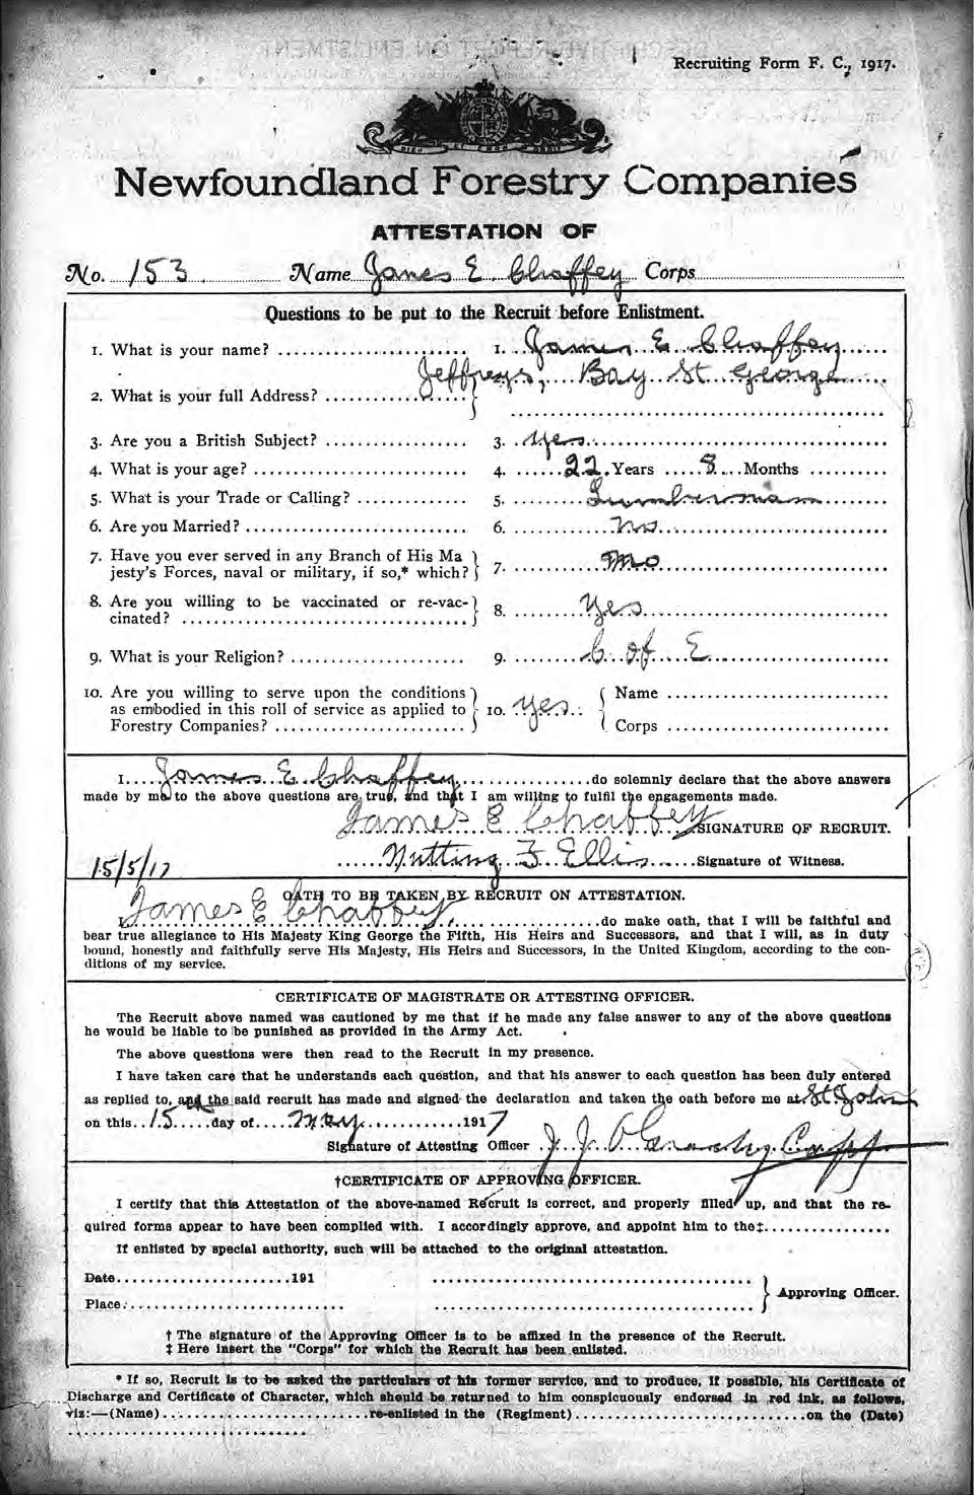 Recruiting Form F. C., 1917.
Newfoundland Forestry Companies
ATTESTATION OF
No. 153. Name James E Chaffey Corps
Questions to be put to the Recruit before Enlistment.
1. What is your name? 1. James E Chaffey
Jeffreys, Bay St George
2. What is your full Address?
3. Are you a British Subject? 3. Yes
4. What is your age? 4. 22 Years 8 Months
5. What is your Trade or Calling? 5. Lumberman
6. Are you Married? 6. No
7. Have you ever served in any Branch of His Ma
jesty's Forces, naval or military, if so,* which? 7. No
8. Are you willing to be vaccinated or re-vac-
cinated? 8. Yes
9. What is your Religion? 9. C of E
10. Are you willing to serve upon the conditions
as embodied in this roll of service as applied to
Forestry Companies? 10. Yes. Name
Corps
I James E Chaffey do solemnly declare that the above answers
made by me to the above questions are true, and that I am willing to fulfil the engagements made.
James E Chaffey SIGNATURE OF RECRUIT.
15/5/17 Nutting F Ellis Signature of Witness.
OATH TO BE TAKEN BY RECRUIT ON ATTESTATION.
James E Chaffey, do make oath, that I will be faithful and
bear true allegiance to His Majesty King George the Fifth, His Heirs and Successors, and that I will, as in duty
bound, honestly and faithfully serve His Majesty, His Heirs and Successors, in the United Kingdom, according to the con-
ditions of my service.
CERTIFICATE OF MAGISTRATE OR ATTESTING OFFICER.
The Recruit above named was cautioned by me that if he made any false answer to any of the above questions
he would be liable to be punished as provided in the Army Act.
The above questions were then read to the Recruit in my presence.
I have taken care that he understands each question, and that his answer to each question has been duly entered
as replied to, and the said recruit has made and signed the declaration and taken the oath before me at St. John's
on this 15 day of May 1917
Signature of Attesting Officer J. J. O'Grady Capt
†CERTIFICATE OF APPROVING OFFICER.
I certify that this Attestation of the above-named Recruit is correct, and properly filled up, and that the re-
quired forms appear to have been complied with. I accordingly approve, and appoint him to the‡
If enlisted by special authority, such will be attached to the original attestation.
Date 191
Approving Officer.
Place
† The signature of the Approving Officer is to be affixed in the presence of the Recruit.
‡ Here insert the "Corps" for which the Recruit has been enlisted.
* If so, Recruit is to be asked the particulars of his former service, and to produce, if possible, his Certificate of
Discharge and Certificate of Character, which should be returned to him conspicuously endorsed in red ink, as follows,
viz:—(Name) re-enlisted in the (Regiment) on the (Date)